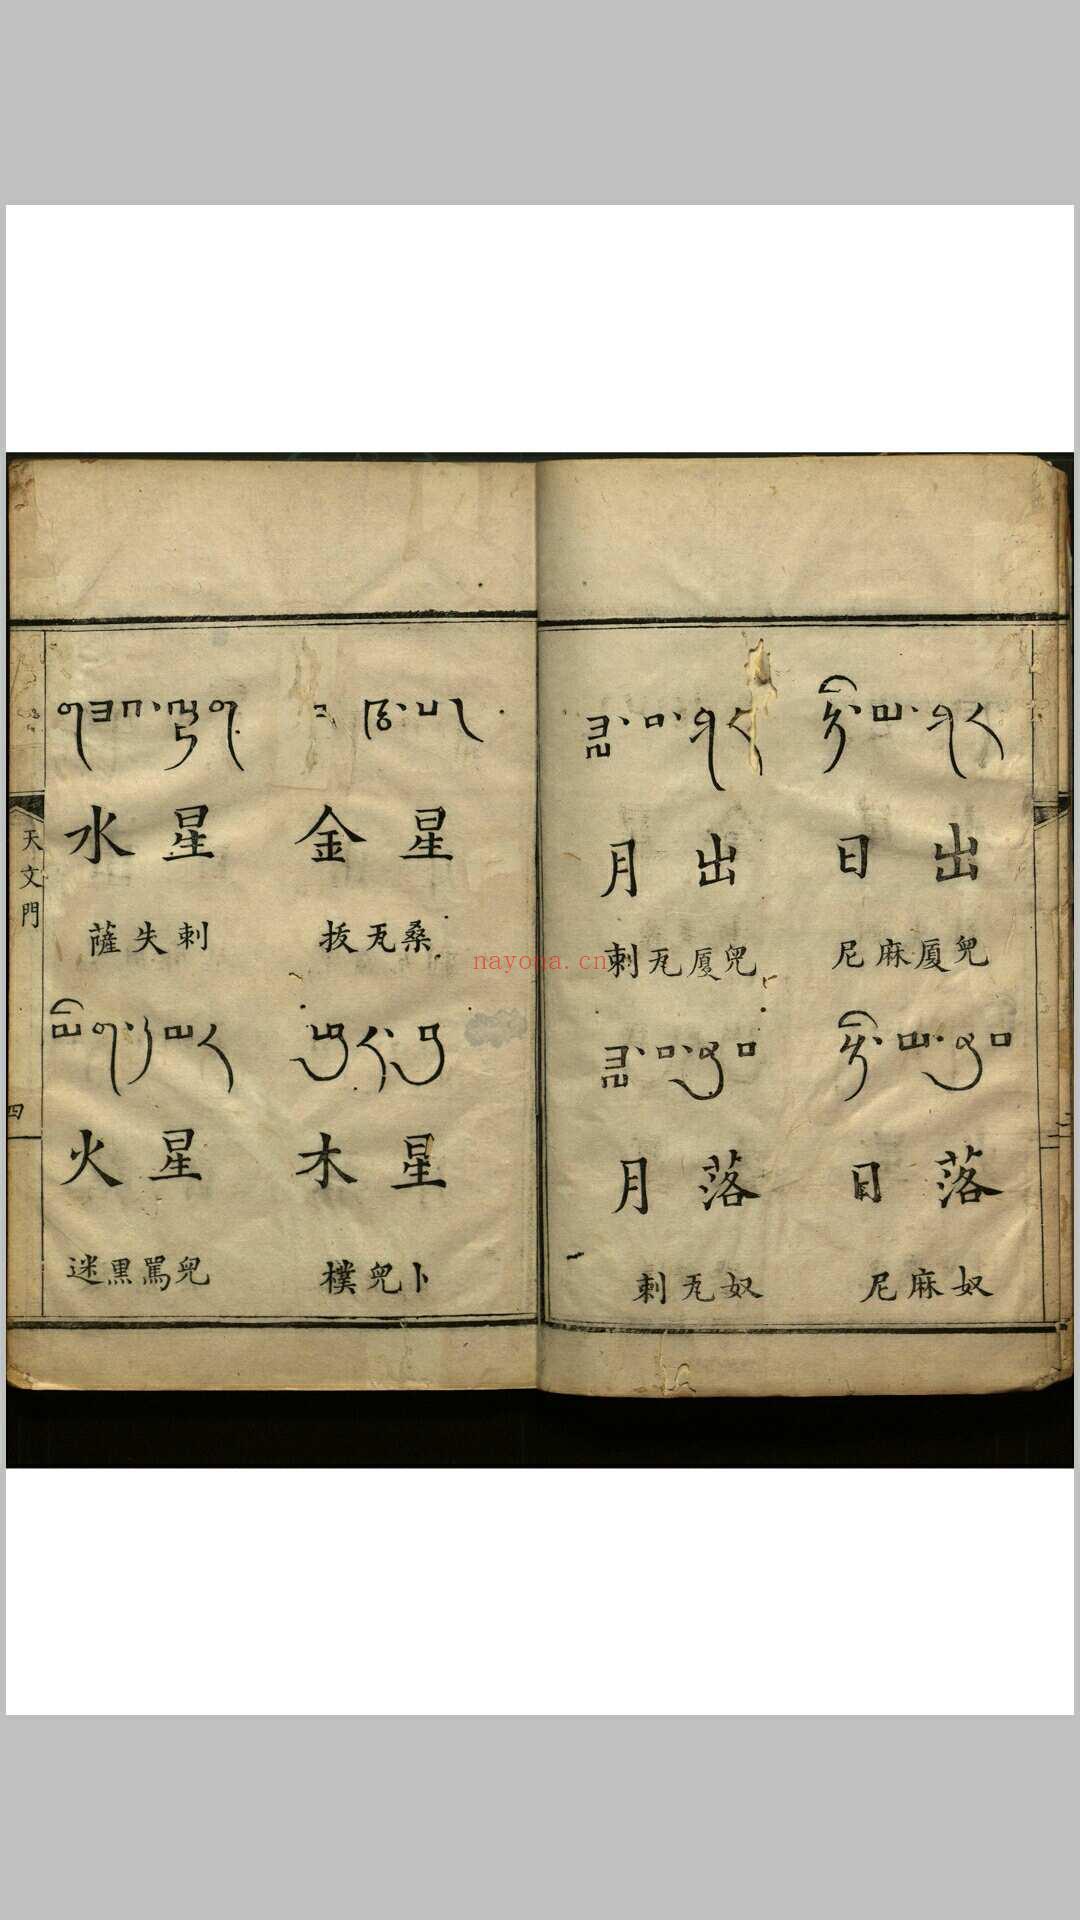 ཉི་མ་ཤར
日出
尼麻厦兒
ཉི་མ་ནུབ
日落
尼麻奴
ཟླ་བ་ཤར
月出
剌瓦厦兒
ཟླ་བ་ནུབ
月落
剌瓦奴
金星
拔瓦桑
ཕུར་བུ
木星
樸兒卜
གཟའ་ལྷག
水星
薩失剌
མིག་དམར
火星
迷黑罵兒
天文門
四
nayona.cn